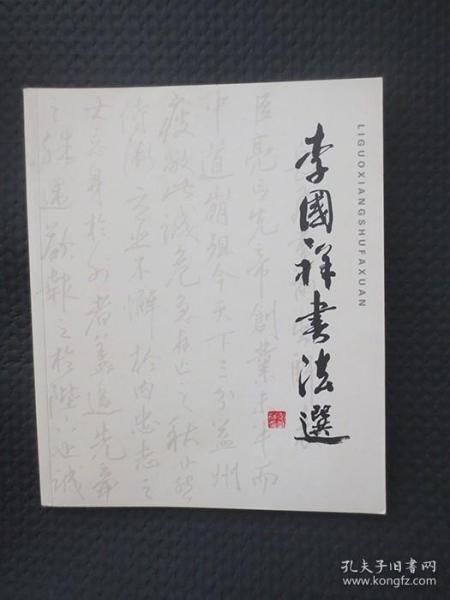 李國祥書法選
LIGUOXIANGSHUFAXUAN
臣亮言先帝創業未半而
中道崩殂今天下三分益州
疲敝此誠危急存亡之秋也然
侍衛之臣不懈於內忠志之
士忘身於外者蓋追先帝
之殊遇欲報之於陛下也誠
孔夫子旧书网
www.kongfz.com